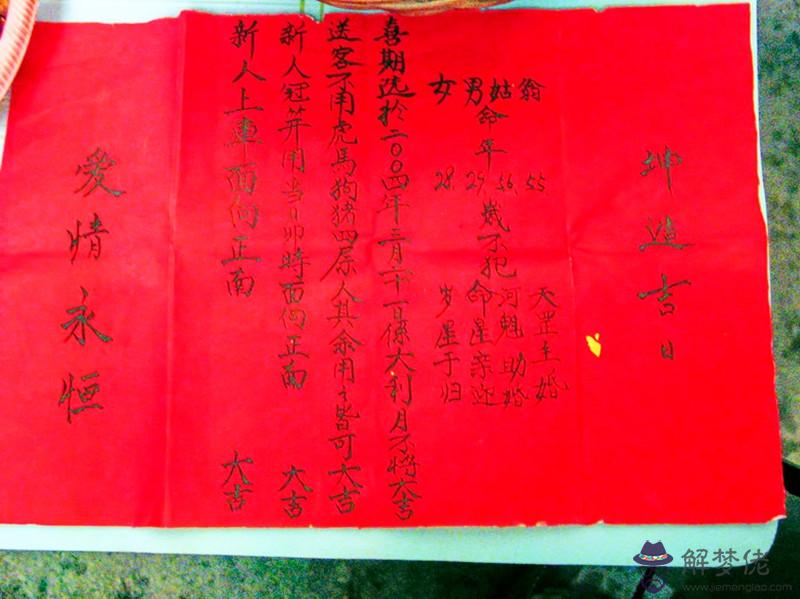 坤造吉日
翁 55 天罡主婚
姑 56 河魁助婚
命年 歲不犯
男 29 命星亲迎
女 28 岁星于归
喜期选於二00四年二月二十一日係大利月不將大吉
送客不用虎馬狗猪四属人其余用之皆可大吉
新人冠笄用当日卯時面向正南 大吉
新人上車面向正南 大吉
愛情永恒
解梦佬
www.jiemenglao.com